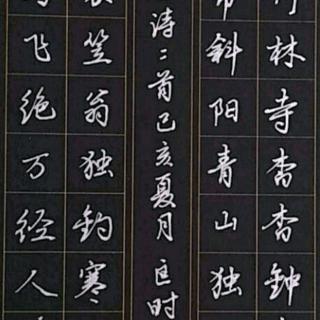 林寺杳杳钟
斜阳青山独
诗二首己亥夏月 时
笠翁独钓寒
飞绝万经人